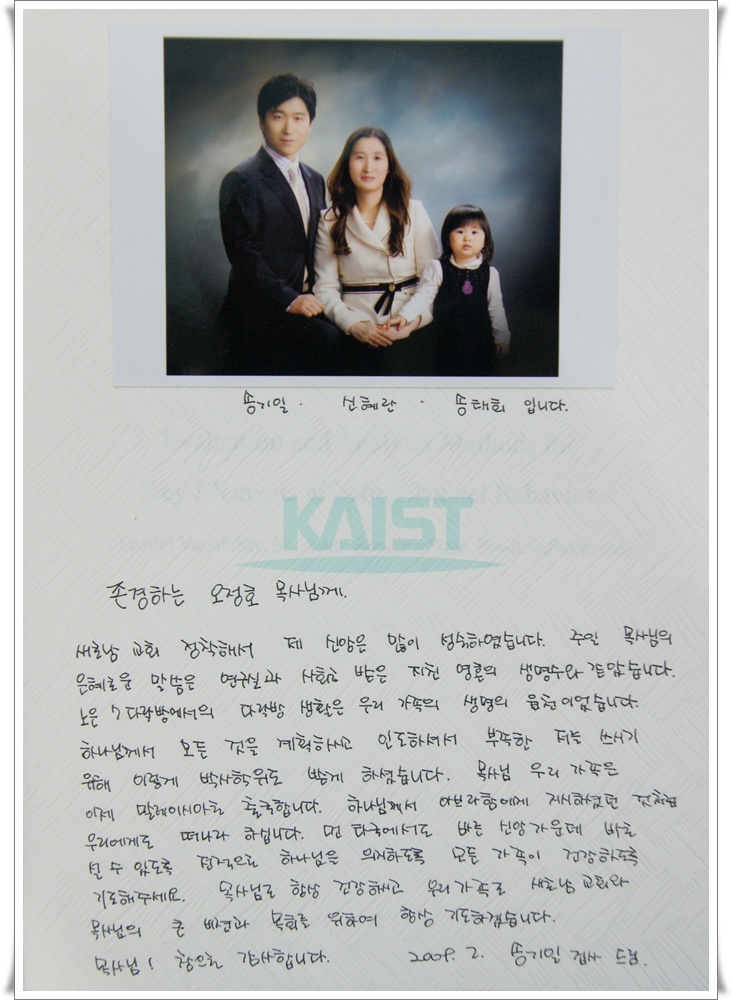 송기일 · 선혜란 · 송태희 입니다.
KAIST
존경하는 오정호 목사님께.
새로남 교회 정착해서 제 신앙은 많이 성숙하였습니다. 주일 목사님의
은혜로운 말씀은 연구실과 사회로 받은 지친 영혼의 생명수와 같았습니다.
노은 7 다락방에서의 다락방 생활은 우리 가족의 생명의 움천이었습니다.
하나님께서 모든 것을 계획하시고 인도하셔서 부족한 저를 쓰시기
위해 이렇게 박사학위도 받게 하셨습니다. 목사님 우리 가족은
이제 말레이시아로 출국합니다. 하나님께서 아브라함에게 지시하셨던 것처럼
우리에게도 떠나라 하십니다. 먼 타국에서도 바른 신앙가운데 바로
설 수 있도록 전적으로 하나님을 의지하도록 모든 가족이 건강하도록
기도해주세요. 목사님도 항상 건강하시고 우리가족도 새로남 교회와
목사님의 큰 비전과 목회를 위하여 항상 기도하겠습니다.
목사님! 참으로 감사합니다. 2009. 2. 송기일 집사 드림.